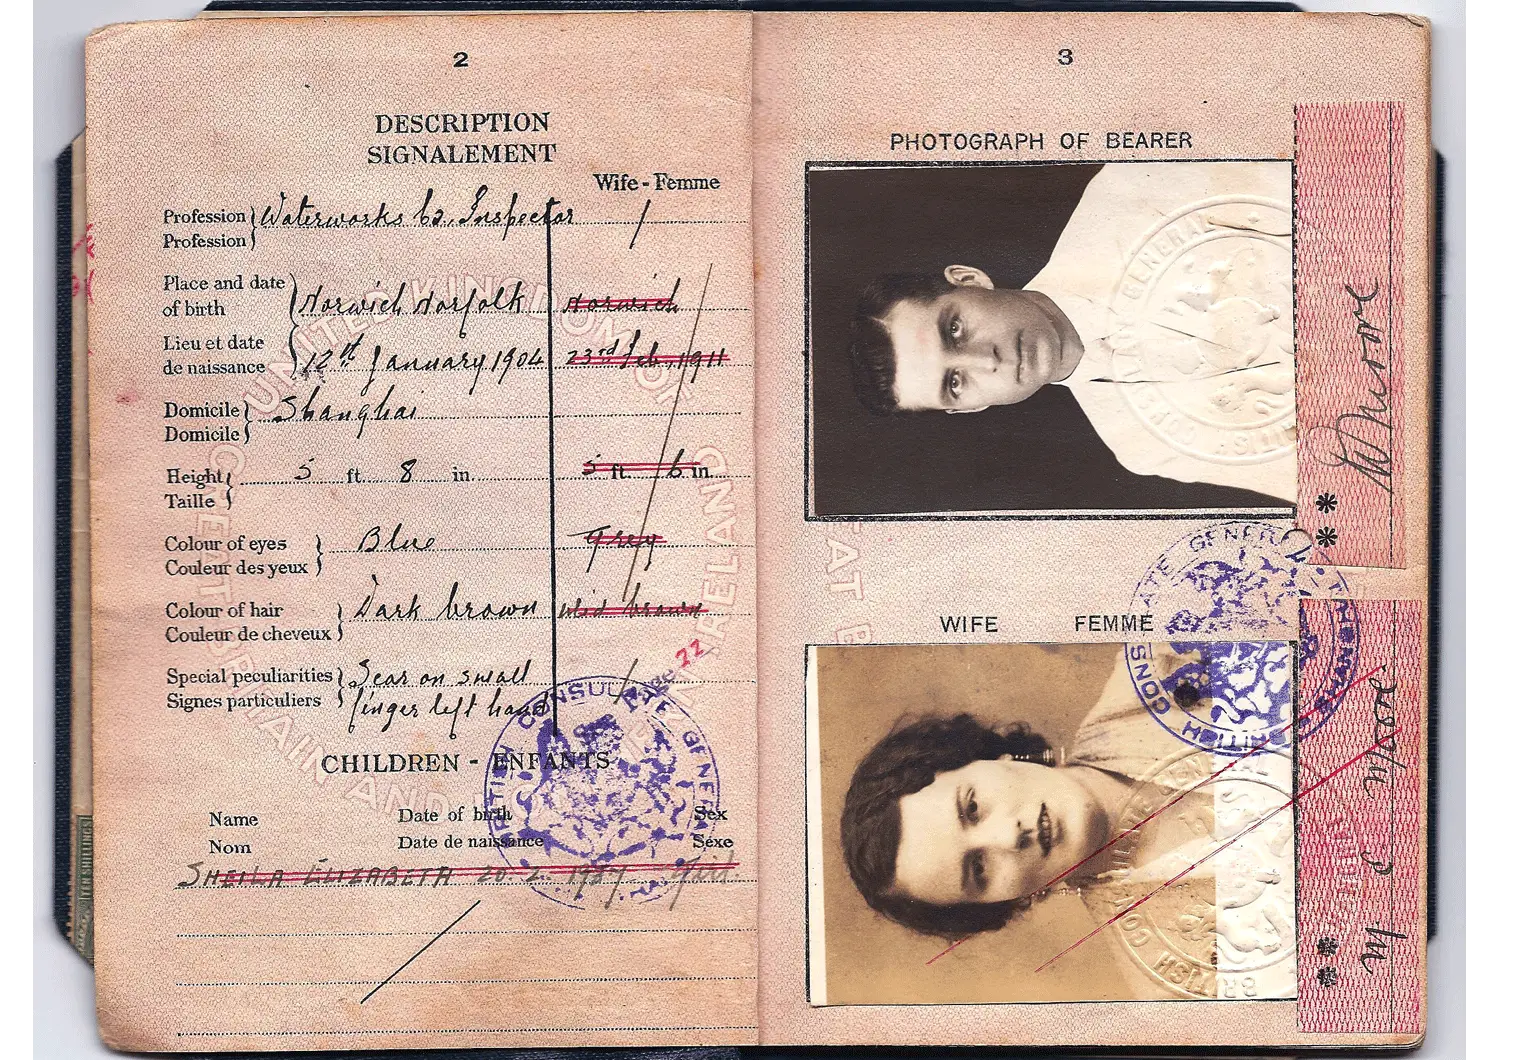 2
DESCRIPTION
SIGNALEMENT
Wife - Femme
Profession Waterworks Co. Inspector
Profession
Place and date
of birth Norwich Norfolk Norwich
Lieu et date
de naissance 12th January 1904 23rd Feb. 1911
Domicile Shanghai
Domicile
Height 5 ft. 8 in. 5 ft. 6 in.
Taille
Colour of eyes Blue Grey
Couleur des yeux
Colour of hair Dark brown Mid brown
Couleur de cheveux
Special peculiarities Scar on small
Signes particuliers finger left hand
Page 22
CHILDREN - ENFANTS
Name Date of birth Sex
Nom Date de naissance Sexe
SHEILA ELIZABETH 20.2.1937 Girl.
BRITISH CONSULATE GENERAL
UNITED KINGDOM OF
GREAT BRITAIN AND
IRELAND
TEN SHILLINGS
3
PHOTOGRAPH OF BEARER
BRITISH CONSULATE GENERAL
Moore
WIFE FEMME
BRITISH CONSULATE GENERAL
BRITISH CONSULATE GENERAL
M E Moore